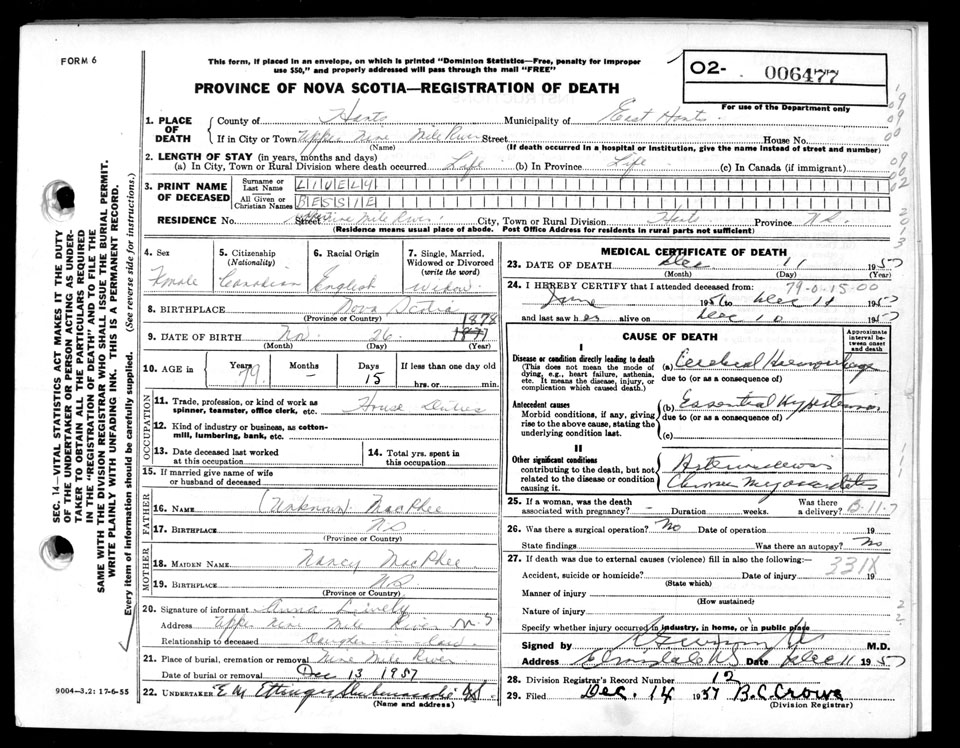 FORM 6
This form, if placed in an envelope, on which is printed "Dominion Statistics—Free, penalty for improper
use $50," and properly addressed will pass through the mail "FREE"
PROVINCE OF NOVA SCOTIA—REGISTRATION OF DEATH
O2- 006477
For use of the Department only
SEC. 14—VITAL STATISTICS ACT MAKES IT THE DUTY
OF THE UNDERTAKER OR PERSON ACTING AS UNDER-
TAKER TO OBTAIN ALL THE PARTICULARS REQUIRED
IN THE "REGISTRATION OF DEATH" AND TO FILE THE
SAME WITH THE DIVISION REGISTRAR WHO SHALL ISSUE THE BURIAL PERMIT.
WRITE PLAINLY WITH UNFADING INK. THIS IS A PERMANENT RECORD.
Every item of information should be carefully supplied. (See reverse side for instructions.)
1. PLACE OF DEATH
County of Hants Municipality of East Hants
If in City or Town Upper Nine Mile River Street House No.
(Name) (If death occurred in a hospital or institution, give the name instead of street and number)
2. LENGTH OF STAY (in years, months and days)
(a) In City, Town or Rural Division where death occurred Life (b) In Province Life (c) In Canada (if immigrant)
3. PRINT NAME OF DECEASED
Surname or Last Name LIVELY
All Given or Christian Names BESSIE
RESIDENCE No. Street Upper Nine Mile River City, Town or Rural Division Hants Province N.S.
(Residence means usual place of abode. Post Office Address for residents in rural parts not sufficient)
4. Sex
Female
5. Citizenship (Nationality)
Canadian
6. Racial Origin
English
7. Single, Married, Widowed or Divorced (write the word)
Widow
8. BIRTHPLACE Nova Scotia
(Province or Country)
9. DATE OF BIRTH Nov. 26 1877 1878
(Month) (Day) (Year)
10. AGE in Years 79 Months - Days 15 If less than one day old
hrs. or min.
OCCUPATION
11. Trade, profession, or kind of work as spinner, teamster, office clerk, etc. House Duties
12. Kind of industry or business, as cotton-mill, lumbering, bank, etc.
13. Date deceased last worked at this occupation
14. Total yrs. spent in this occupation
15. If married give name of wife or husband of deceased
FATHER
16. NAME (Unknown) MacPhee
17. BIRTHPLACE NS
(Province or Country)
MOTHER
18. MAIDEN NAME Nancy MacPhee
19. BIRTHPLACE NS
(Province or Country)
20. Signature of informant Anna Lively
Address Upper Nine Mile River N.S
Relationship to deceased Daughter-in-Law
21. Place of burial, cremation or removal Nine Mile River
Date of burial or removal Dec 13 1957
22. UNDERTAKER E M Ettinger Shubenacadie NS
(Name and address)
9004-3.2: 17-6-55
MEDICAL CERTIFICATE OF DEATH
23. DATE OF DEATH Dec 11 1957
(Month) (Day) (Year)
79-0-15-00
24. I HEREBY CERTIFY that I attended deceased from:
June 1956 to Dec 11 1957
and last saw her alive on Dec 10 1957
CAUSE OF DEATH
Approximate interval between onset and death
I
Disease or condition directly leading to death
(This does not mean the mode of dying, e.g., heart failure, asthenia, etc. It means the disease, injury, or complication which caused death.)
(a) Cerebral Hemorrhage
due to (or as a consequence of)
Antecedent causes
Morbid conditions, if any, giving rise to the above cause, stating the underlying condition last.
(b) Essential Hypertension
due to (or as a consequence of)
(c)
II
Other significant conditions
contributing to the death, but not related to the disease or condition causing it.
Arteriosclerosis
Chronic Myocarditis
25. If a woman, was the death associated with pregnancy? - Duration weeks. Was there a delivery?
B-11-7
26. Was there a surgical operation? No Date of operation 19
State findings Was there an autopsy? No
27. If death was due to external causes (violence) fill in also the following:—
331X
Accident, suicide or homicide? Date of injury 19
(State which)
Manner of injury
(How sustained)
Nature of injury
Specify whether injury occurred in industry, in home, or in public place
Signed by M.D.
Address Elmsdale NS Date Dec 11 1957
28. Division Registrar's Record Number 12
29. Filed Dec. 14 1957 B.C. Crowe
(Division Registrar)